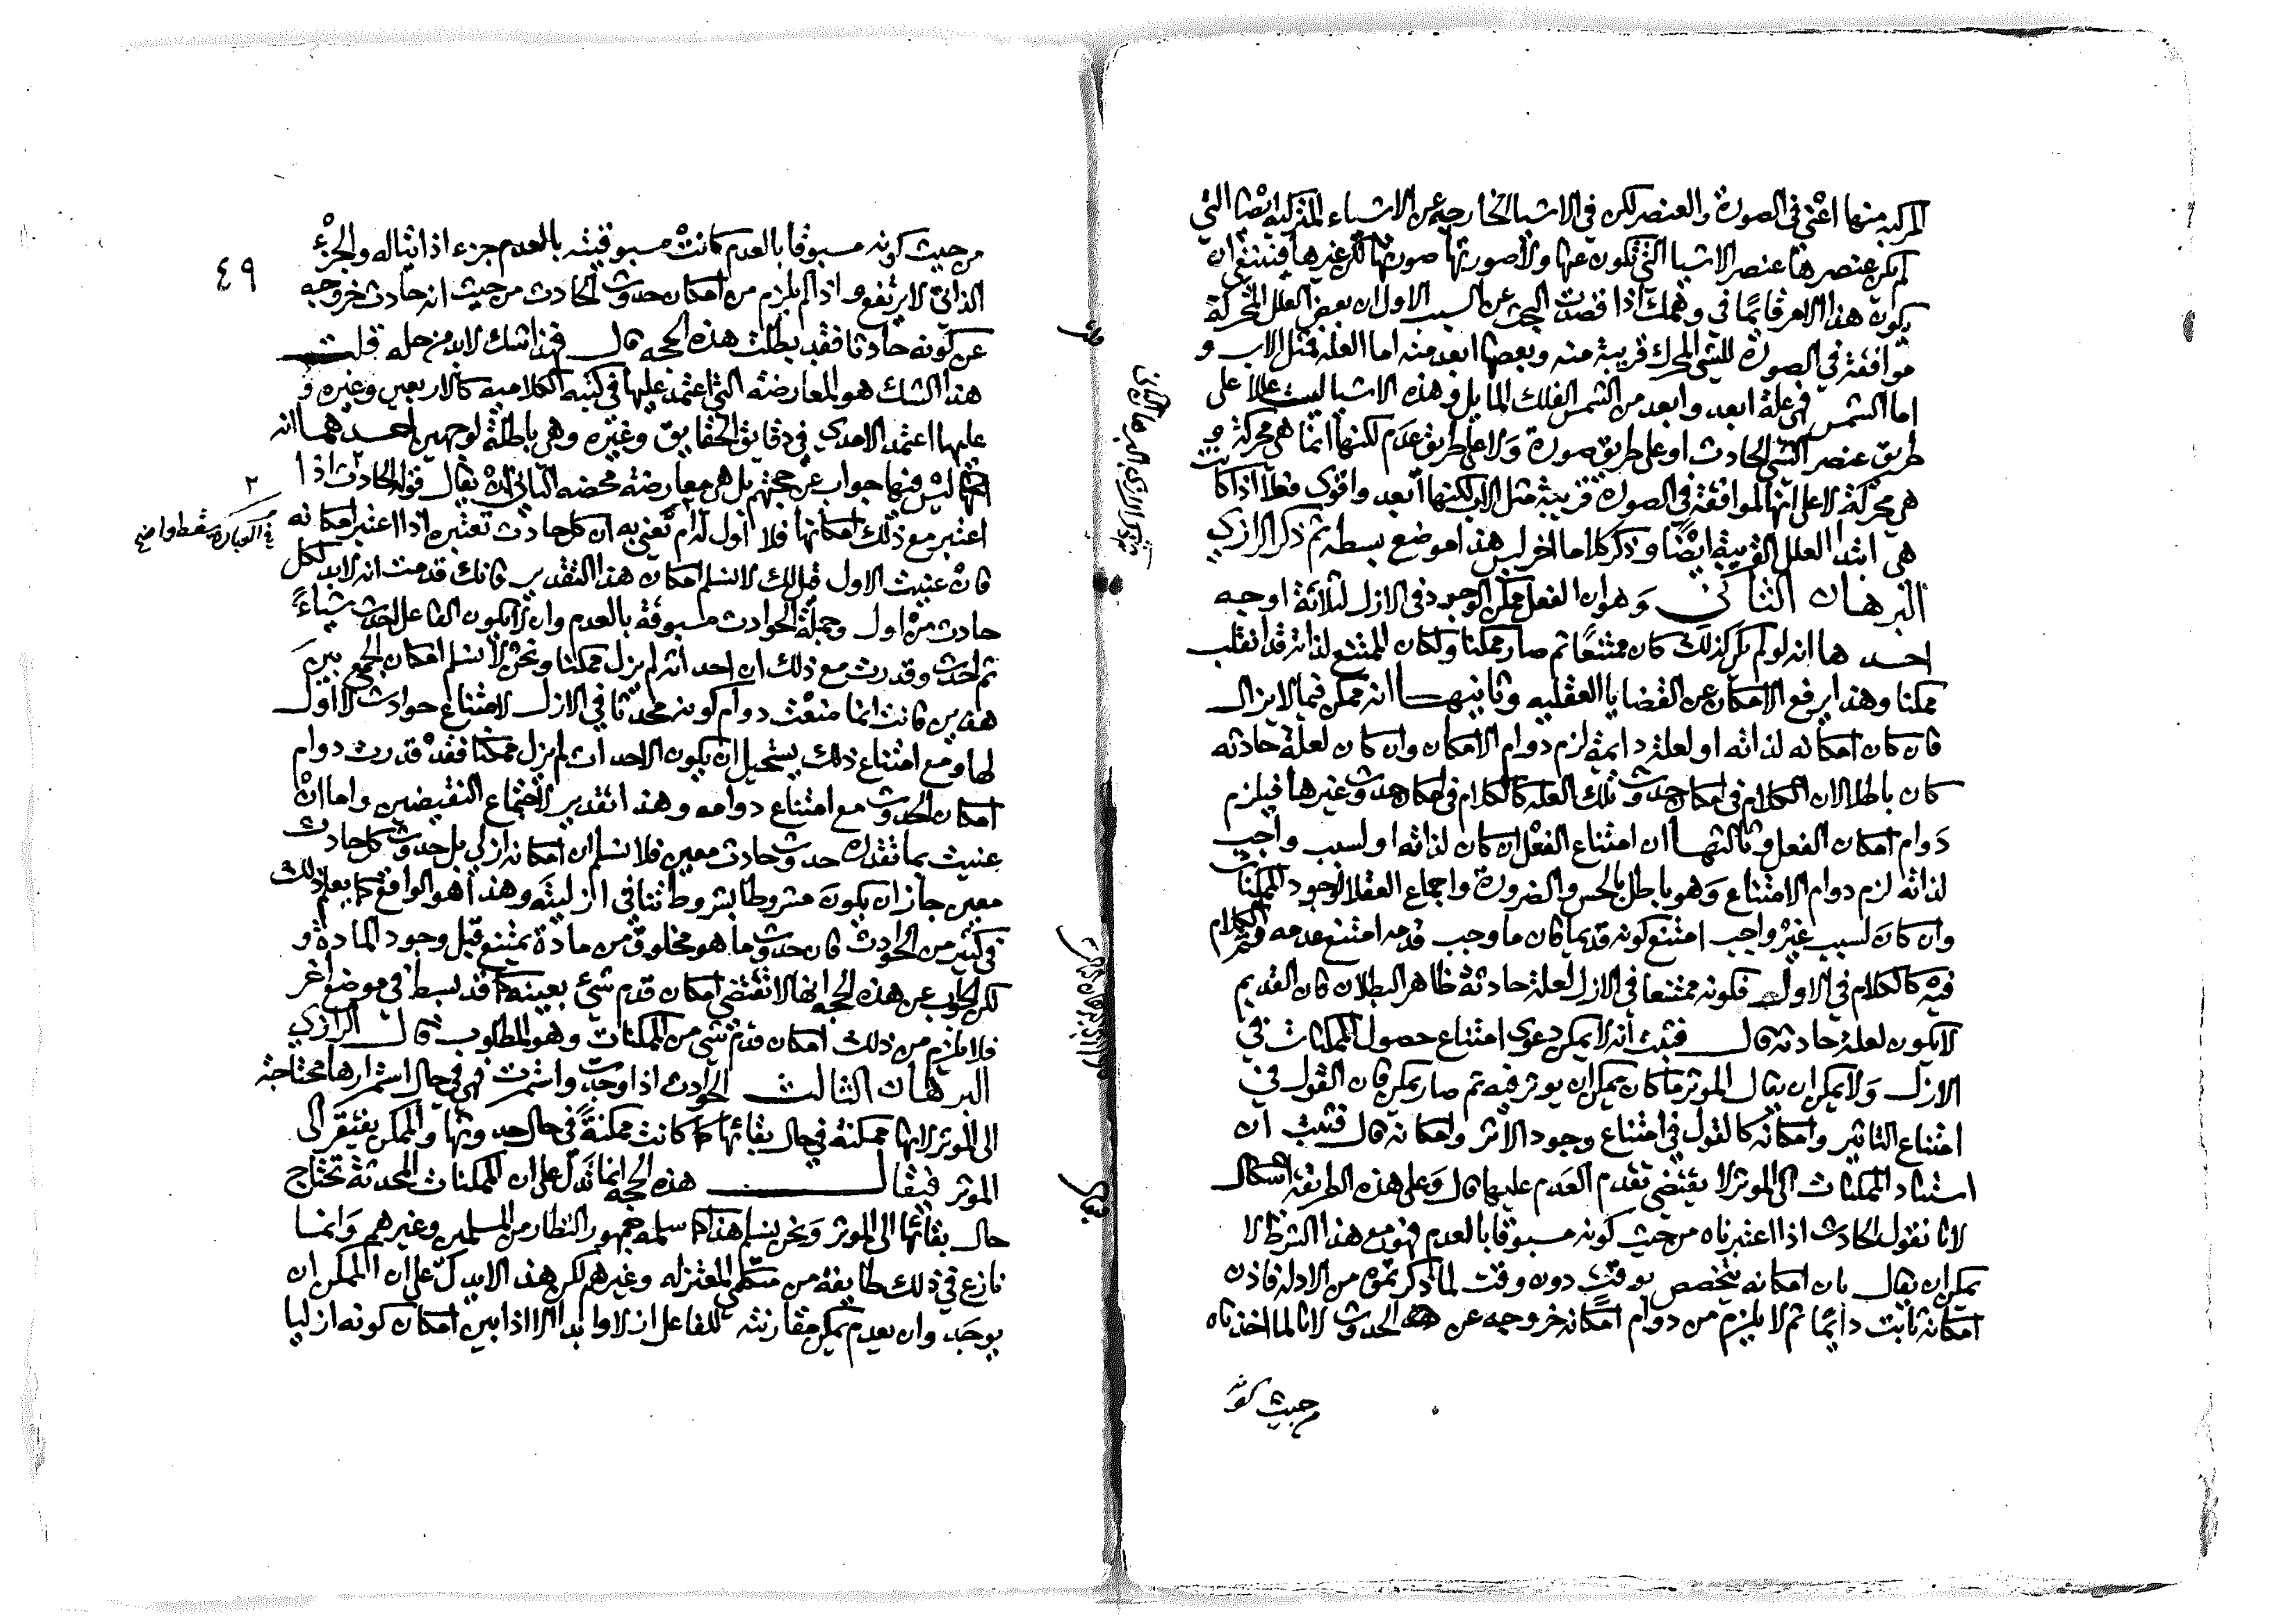 المركبة منها اعني في الصورة والعنصر لكن في الاشيا الخارجه عن الاشياء المتركبة ايضا التي
لم يكن عنصرها عنصر الاشيا التي تكون عنها ولا صورتها صورتها لكن غيرها فينبغي ان
يكون هذا الامر قايمًا في وهمك اذا قصدت البحث عن السبب الاول ان بعض العلل المحركة
موافقة في الصورة للشي المحرك قريبة منه وبعضها ابعد منه اما العلة فمثل الاب و
اما الشمس فهي علة ابعد وابعد من الشمس الفلك المايل وهذه الاشيا ليست عللا على
طريق عنصر الشي الحادث او على طريق صورة ولا على طريق عدم لكنها انما هي محركة و
هي محركة لا على انها الموافقة في الصورة قريبة مثل الاب لكنها ابعد واقوى فعلا اذا كانت
هي ابتدا العلل القريبة ايضًا وذكر كلاما اخر ليس هذا موضع بسطه ثم ذكر الرازي
البرهان الثاني وهو ان الفعل ممكن الوجود في الازل لثلاثة اوجه
احدها انه لو لم يكن كذلك كان ممتنعًا ثم صار ممكنا ولكان الممتنع لذاته قد انقلب
ممكنا وهذا يرفع الامكان عن القضايا العقليه وثانيها انه ممكن فيما لا يزال
فان كان امكانه لذاته او لعلة دايمة لزم دوام الامكان وان كان لعلة حادثه
كان باطلا لان الكلام في امكان حدوث تلك العله كالكلام في امكان حدوث غيرها فيلزم
دوام امكان الفعل وثالثها ان امتناع الفعل ان كان لذاته او لسبب واجب
لذاته لزم دوام الامتناع وهو باطل بالحس والضرورة واجماع العقلا لوجود الممكنات
وان كان لسبب غير واجب امتنع كونه قديما فان ما وجب قدمه امتنع عدمه ثم الكلام
فيه كالكلام في الاول فكونه ممتنعا في الازل لعلة حادثة ظاهر البطلان فان القديم
لا يكون لعلة حادثه قال فثبت انه لا يمكن دعوى امتناع حصول الممكنات في
الازل ولا يمكن ان يقال الموثر ما كان يمكن ان يوثر فيه ثم صار يمكن فان القول في
امتناع التاثير وامكانه كالقول في امتناع وجود الاثر وامكانه قال فثبت ان
استناد الممكنات الى الموثر لا يقتضي تقدم العدم عليها قال وعلى هذه الطريقة اشكال
لانا نقول الحادث اذا اعتبرناه من حيث كونه مسبوقا بالعدم فهو مع هذا الشرط لا
يمكن ان يقال بان امكانه يتخصص بوقت دون وقت لما ذكرتموه من الادلة فاذن
امكانه ثابت دايمًا ثم لا يلزم من دوام امكانه خروجه عن الحدوث لانا لما اخذناه
من حيث كونه
٤٩
من حيث كونه مسبوقا بالعدم كانت مسبوقيته بالعدم جزء اذاتياله والجزء
الذاتي لا يرتفع واذا لم يلزم من امكان حدوث الحادث من حيث انه حادث خروجه
عن كونه حادثا فقد بطلت هذه الحجه قال فهذا شك لابد من حله قلت
هذا الشك هو المعارضة التي اعتمد عليها في كتبه الكلامية كالاربعين وغيره و
عليها اعتمد الامدي في دقايق الحقايق وغيره وهي باطلة لوجهين احدهما انه
ليس فيها جواب عن حجتهم بل هي معارضة محضه الثاني ان يقال قوله الحادث اذا
اعتبر مع ذلك امكانها فلا اول له ام تعني به ان كل حادث تعتبره اذا اعتبر امكانه
فان عنيت الاول قيل لك لا نسلم امكان هذا التقدير فانك قدمت انه لابد لكل
حادث من اول وجملة الحوادث مسبوقة بالعدم وان لا يكون الفاعل احدث شياءً
ثم احدث وقدرت مع ذلك ان احداثه لم يزل ممكنا ونحن لا نسلم امكان الجمع بين
هذين فانت انما منعت دوام كونه محدثا في الازل لامتناع حوادث لا اول
لها ومع امتناع ذلك يستحيل ان يكون الاحداث لم يزل ممكنا فقد قدرت دوام
امكان الحدوث مع امتناع دوامه وهذا تقدير لاجتماع النقيضين واما ان
عنيت بما تقدره حدوث حادث معين فلا نسلم ان امكانه ازلي بل حدوث كل حادث
معين جاز ان يكون مشروطا بشروط تنافي ازليته وهذا هو الواقع كما يعلم ذلك
في كثير من الحوادث فان حدوث ما هو مخلوق من مادة يمتنع قبل وجود المادة و
لكن الجواب عن هذه الحجه انها لا تقتضي امكان قدم شي بعينه كما قد بسط في موضع اخر
فلا يلزم من ذلك امكان قدم شي من الممكنات وهو المطلوب قال الرازي
البرهان الثالث الحوادث اذا وجدت واستمرت فهي في حال استمرارها محتاجة
الى الموثر لانها ممكنة في حال بقائها كما كانت ممكنةً في حال حدوثها والممكن يفتقر الى
الموثر فيقال هذه الحجه انما تدل على ان الممكنات المحدثة تحتاج
حال بقائها الى الموثر ونحن نسلم هذا كما سلمه جمهور النظار من المسلمين وغيرهم وانما
نازع في ذلك طايفة من متكلمي المعتزله وغيرهم لكن هذا لا يدل على ان الممكن ان
يوجد وان يعدم يمكن مقارنته للفاعل ازلا وابدا الا اذا بين امكان كونه ازليا
في العبارة سقط واضح